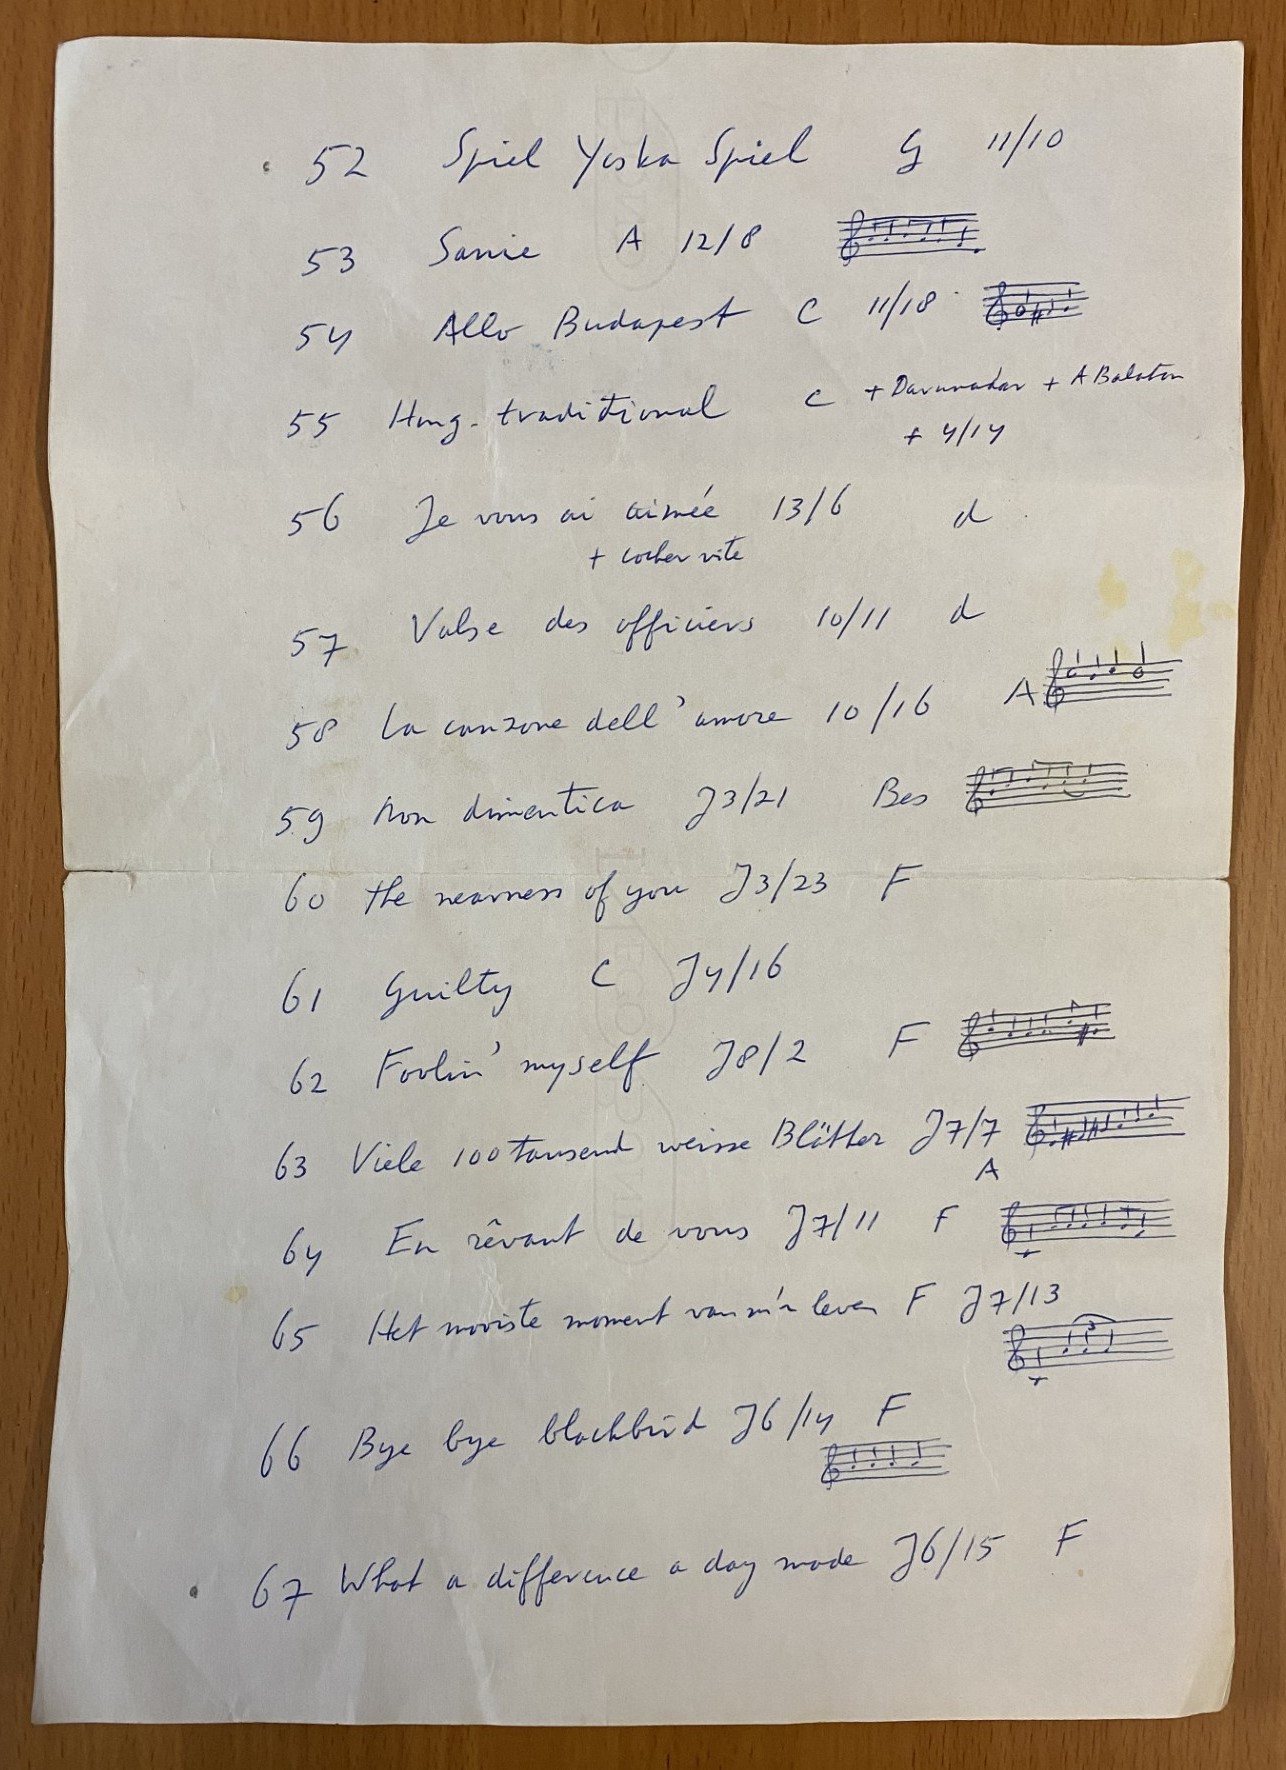 52 Spiel Yoska Spiel G 11/10
53 Sanie A 12/8
54 Allo Budapest C 11/18
55 Hong. traditional C + Darumadar + A Balaton
+ 4/14
56 Je vous ai aimée 13/6 d
+ cocher vite
57 Valse des officiers 10/11 d
58 La canzone dell'amore 10/16 A
59 Non dimentica J3/21 Bes
60 the nearness of you J3/23 F
61 Guilty C J4/16
62 Foolin' myself J8/2 F
63 Viele 100 tausend weisse Blätter J7/7
A
64 En rêvant de vous J7/11 F
65 Het mooiste moment van m'n leven F J7/13
3
66 Bye bye blackbird J6/14 F
67 What a difference a day made J6/15 F